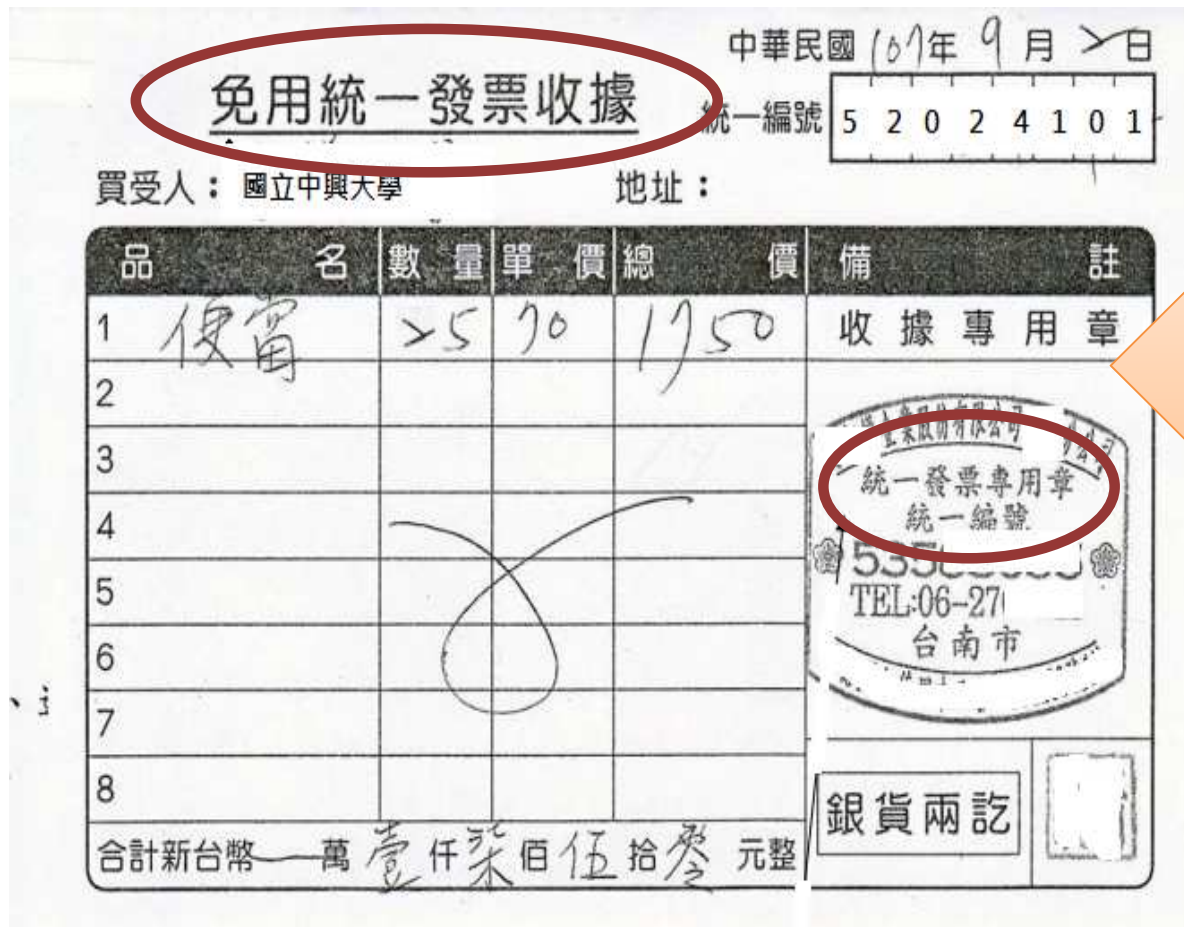 中華民國107年9月2日
免用統一發票收據
統一編號 5 2 0 2 4 1 0 1
買受人：國立中興大學 地址：
品名 數量 單價 總價 備註
1 便當 25 70 1750 收據專用章
2
3
4
5
6
7
8
業股份有限公司
統一發票專用章
統一編號
TEL:06-27
台南市
銀貨兩訖
合計新台幣 萬壹仟柒佰伍拾零元整